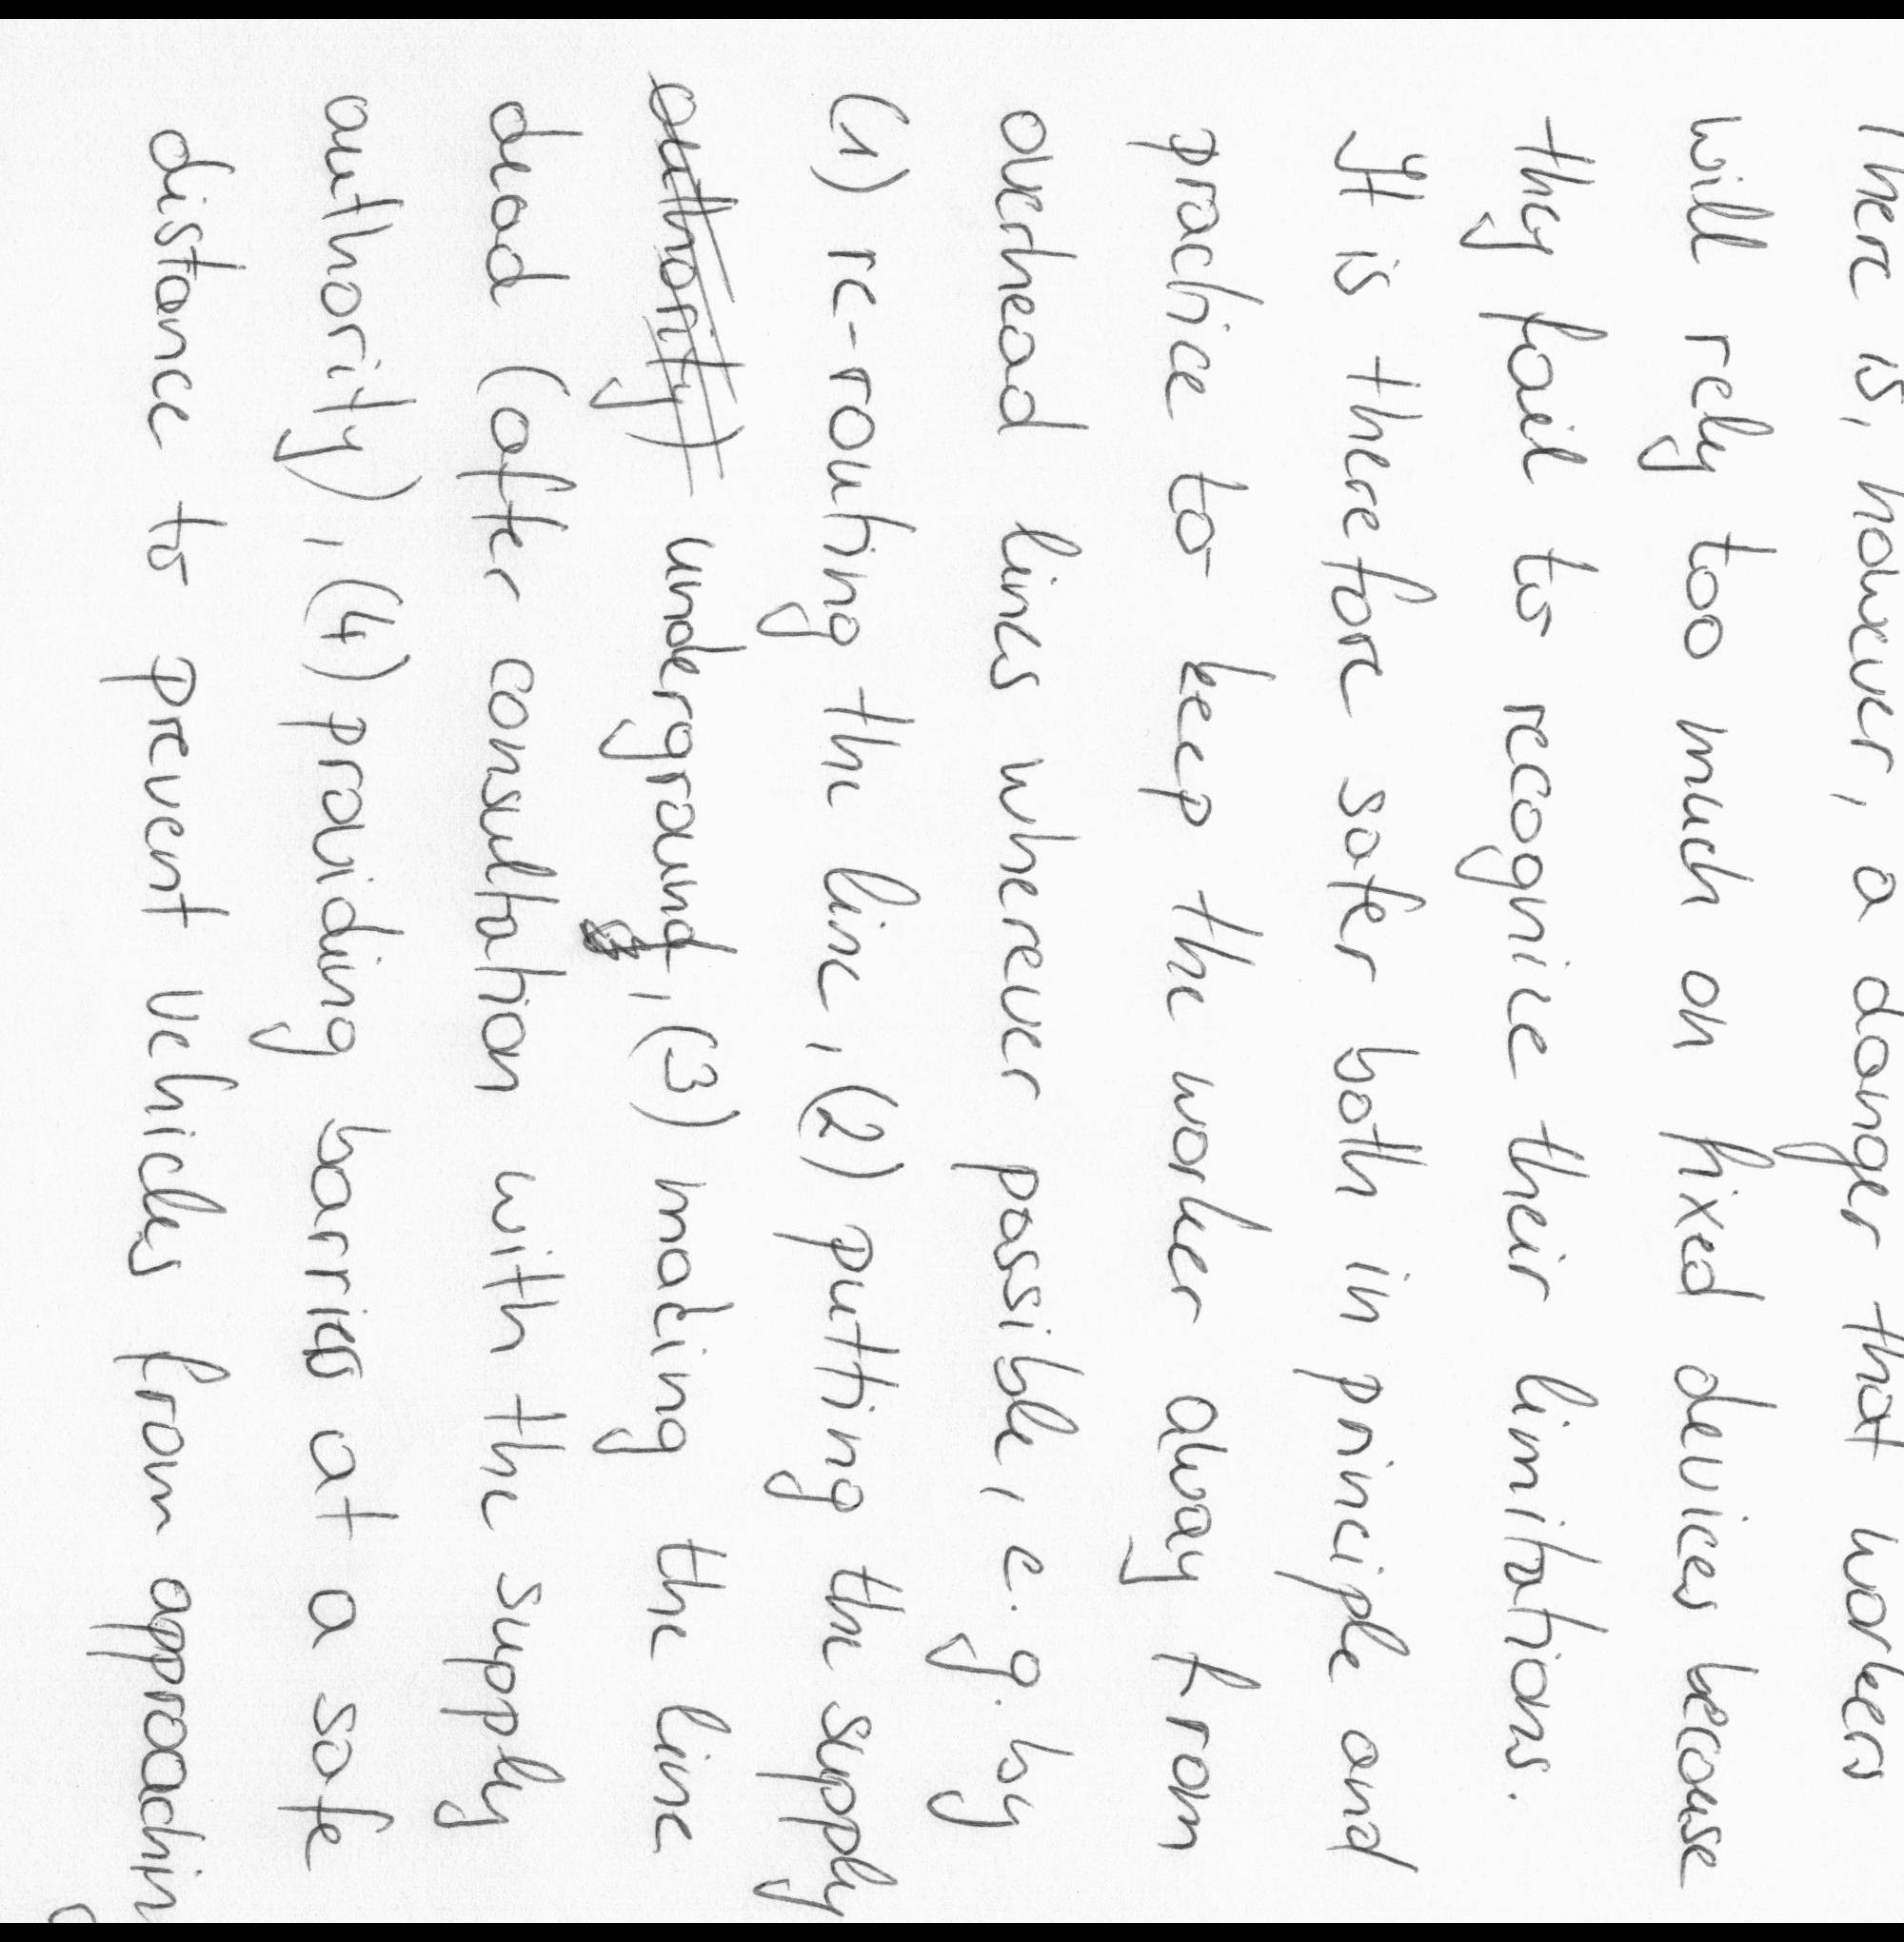 There is, however, a danger that workers
will rely too much on fixed devices because
they fail to recognice their limitations.
It is therefore safer both in principle and
practice to keep the worker away from
overhead lines wherever possible, e.g. by
(1) re-routing the line, (2) putting the supply
authority) underground, (3) making the line
dead (after consultation with the supply
authority), (4) providing barries at a safe
distance to prevent vehicles from approachin